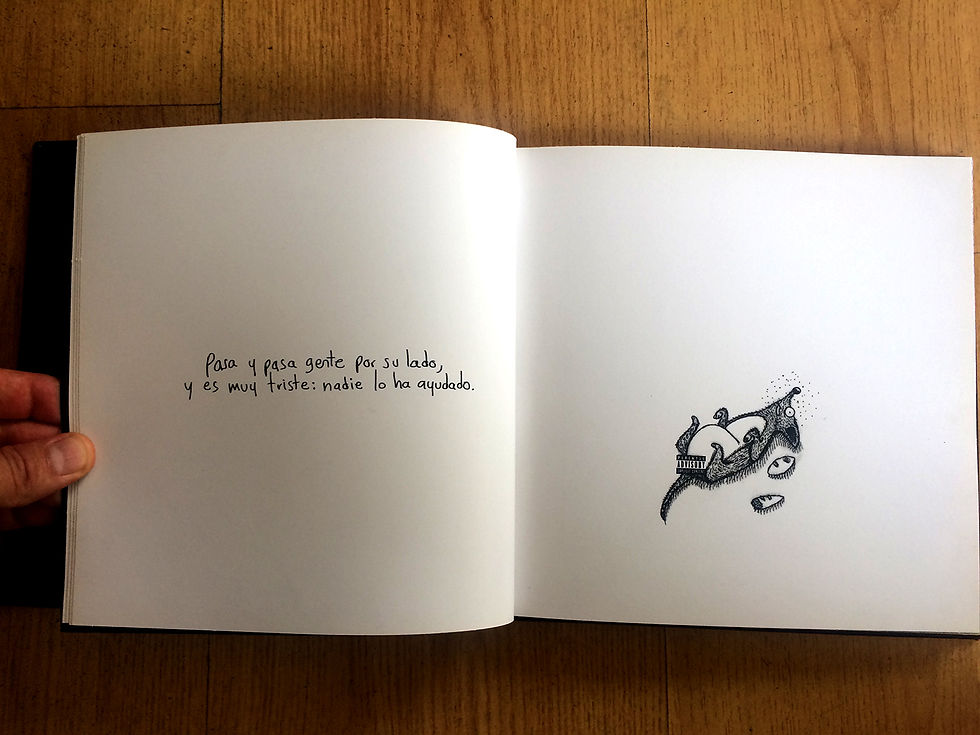 Pasa y pasa gente por su lado,
y es muy triste: nadie lo ha ayudado.
PARENTAL
ADVISORY